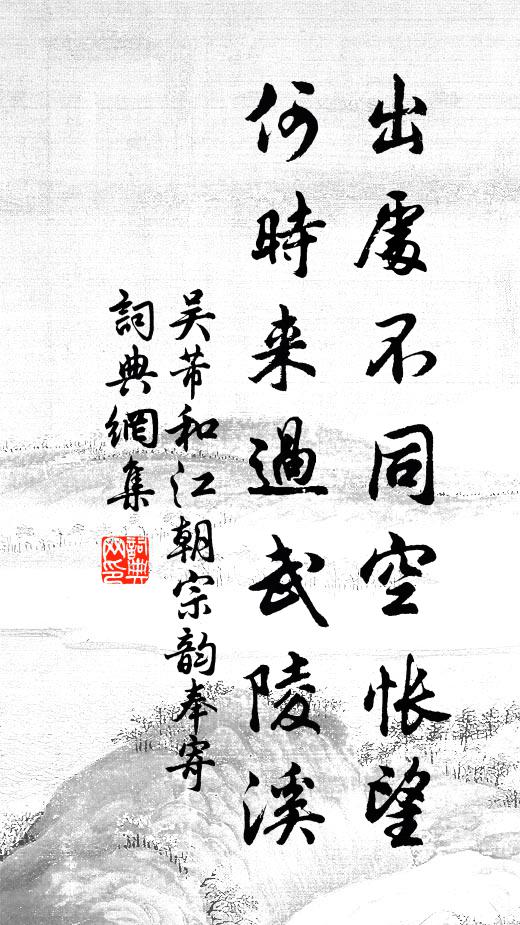 出處不同空悵望
何時来過武陵溪
吴芾和江朝宗韵奉寄
詞典網集
詞典網印